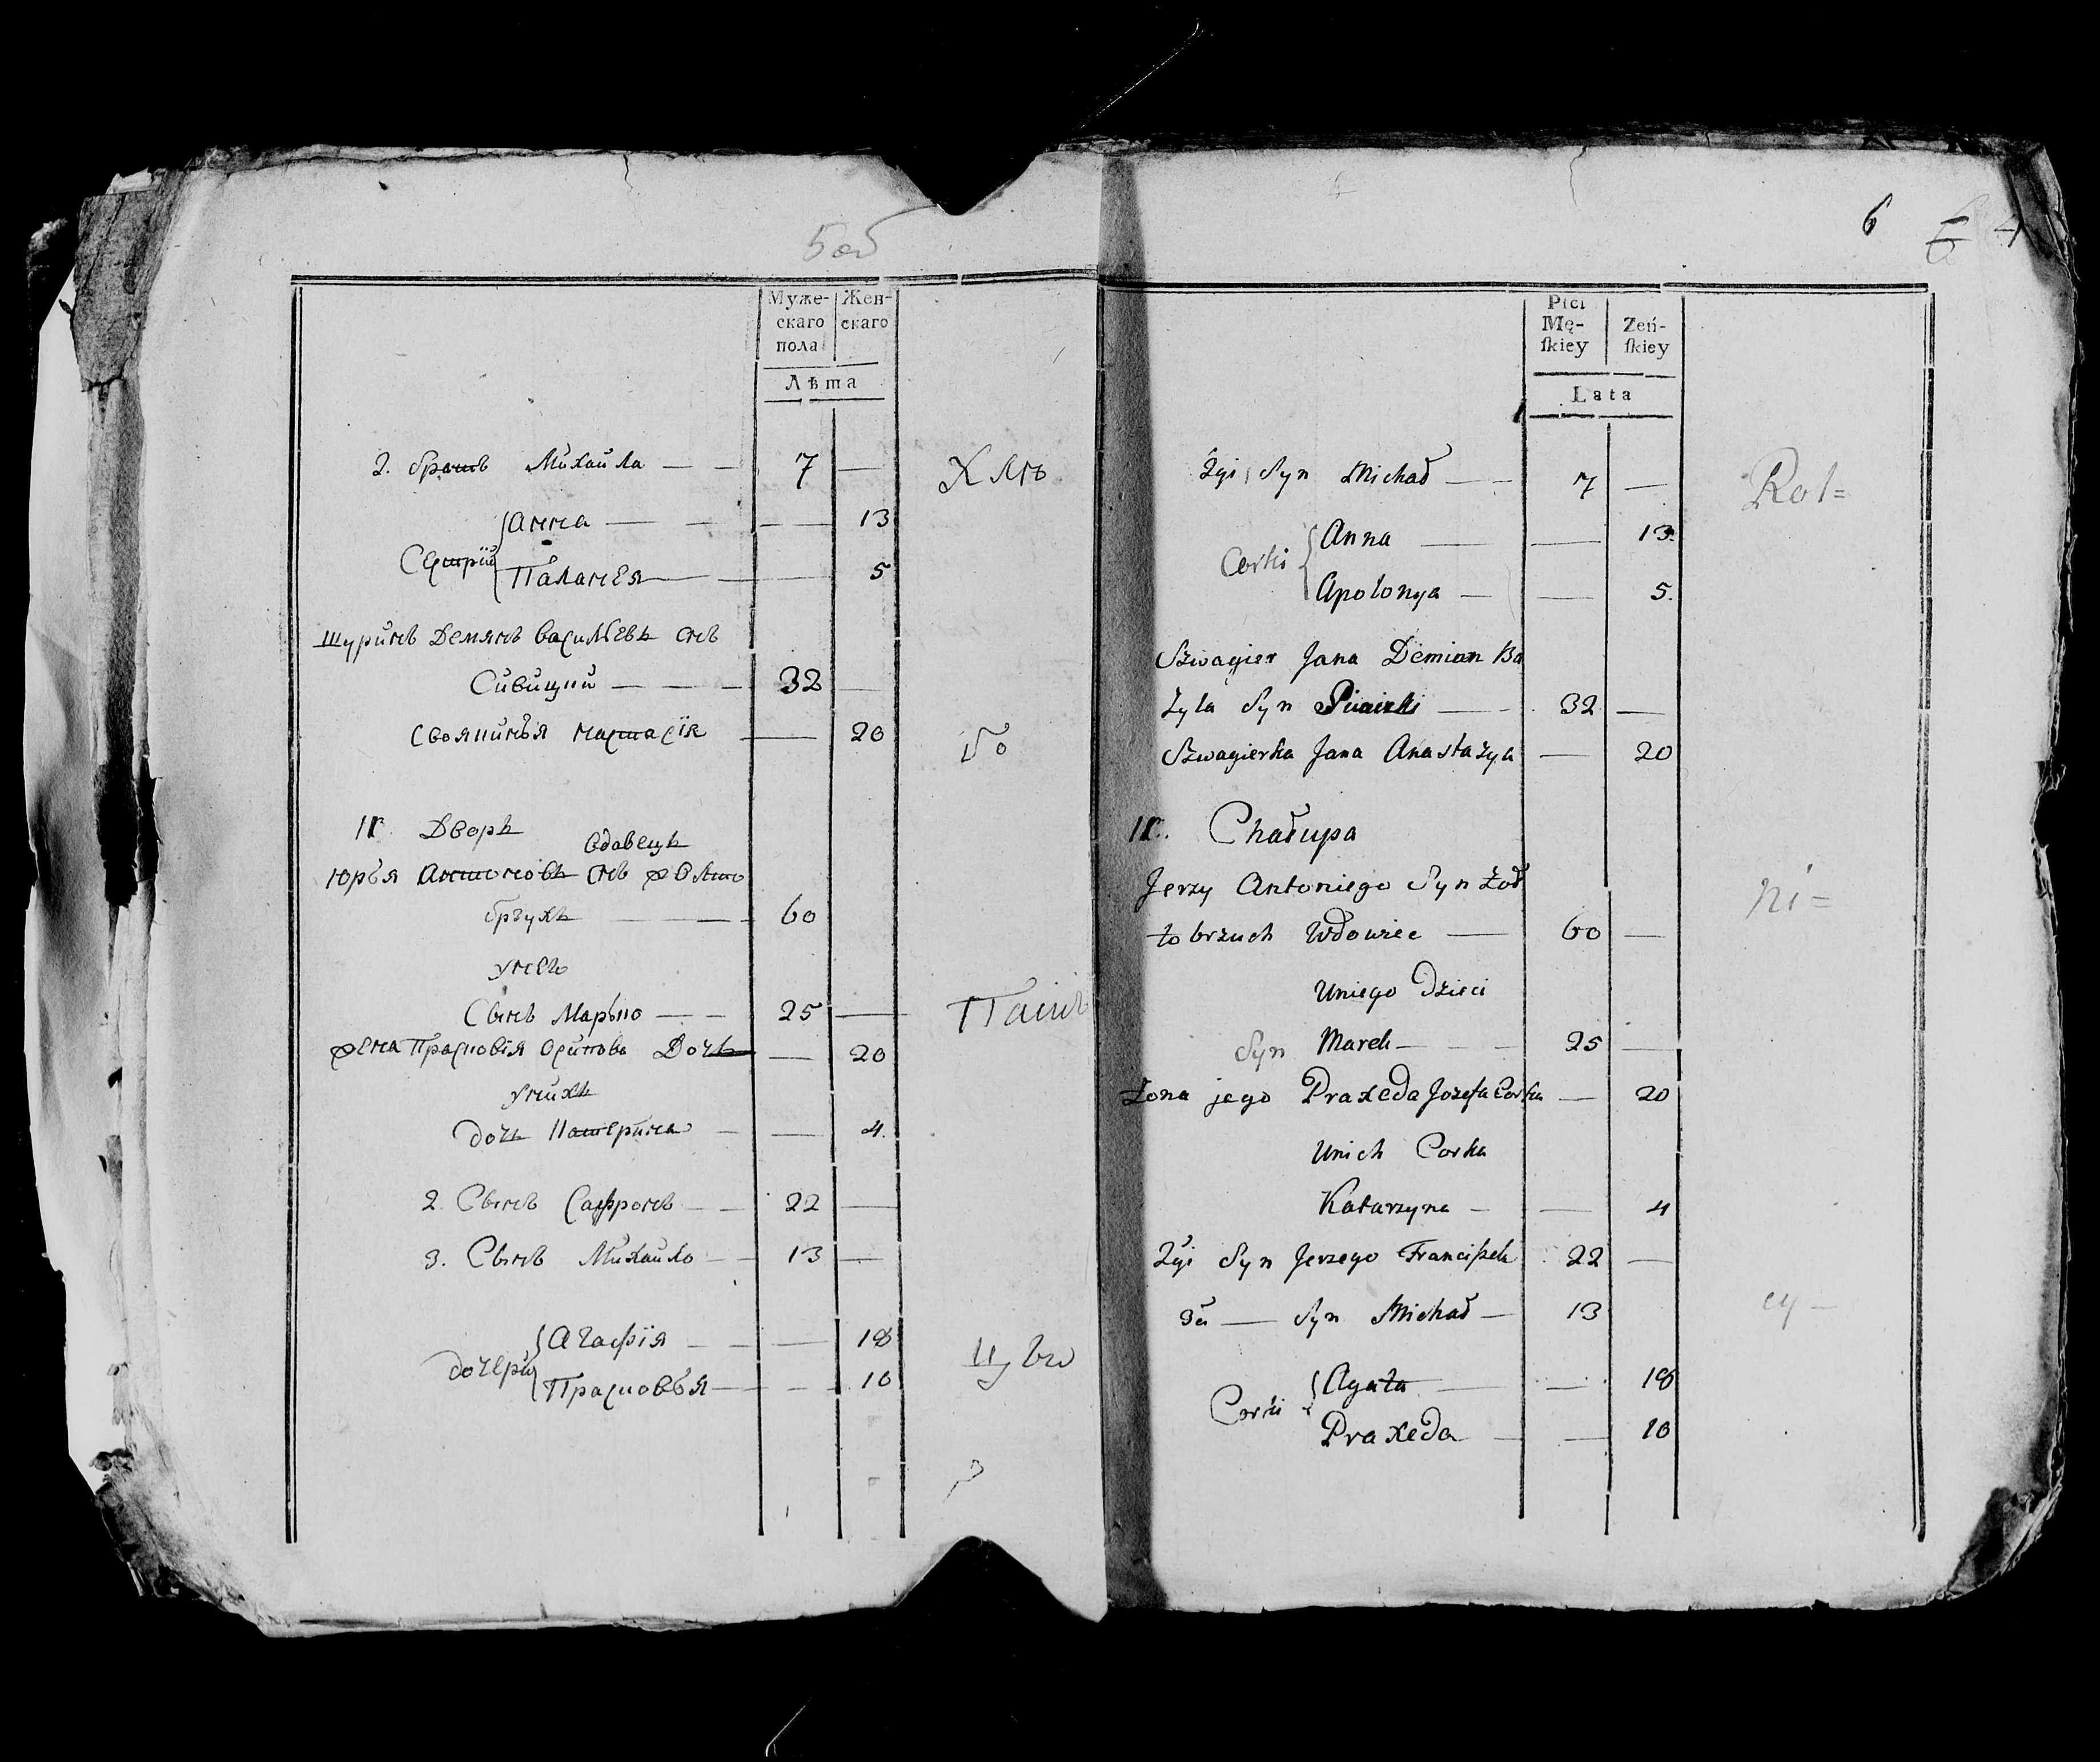 5 об
Муже-
скаго
пола
Жен-
скаго
Лѣта
2. братъ Михайла — — 7 — Хлѣ
Сестры { Анна — — — 13
Паланея — — — 5
Шуринъ Демянъ Васильевъ снъ
Сивицкий — — — 32 —
Свояпинья Настасїя — — 20 бо
11. Дворъ
Вдавецъ
Юрья Антоновъ снъ Жолто
брухъ — — 60
У него
Сынъ Марко — — 25 — Паш
Жена Прасковія Осипова Дочь — 20
У нихъ
дочь Катерина — — 4.
2. Сынъ Сафронъ — — 22 —
3. Сынъ Михайло — — 13 —
дочери { Агафїя — — — 18
Прасковья — — — 10
6 6 4
Płci
Mę-
ſkiey
Żeń-
ſkiey
Lata
2gi Syn Michał — — 7 — Rol=
Corki { Anna — — 13.
Apolonya — — 5.
Szwagier Jana Demian Ba
zyla Syn Siwicki — — 32 —
Szwagierka Jana Anastazya — 20
11. Chałupa
Jerzy Antoniego Syn Żoł
to brzuch Wdowiec — 60 — ni=
Uniego Dzieci
Syn Marek — — — 25 —
Żona jego Praxeda Jozefa Corka — 20
Unich Corka
Katarzyna — — 4
2gi Syn Jerzego Franciſzek 22 —
3ci — Syn Michał — 13 cy —
Corki { Agata — — 18
Praxeda — — 10